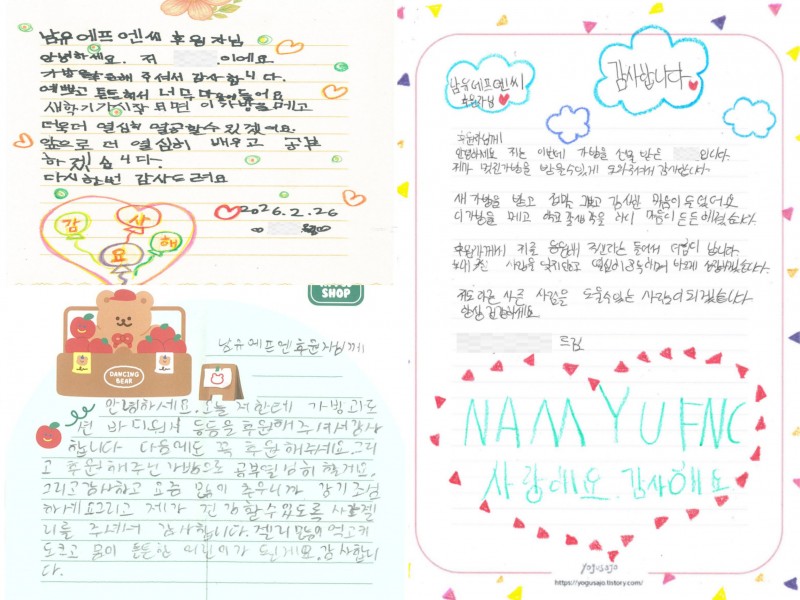 남유에프엔씨 후원자님
안녕하세요. 저 이에요
가방을 후원해 주셔서 감사합니다.
예쁘고 튼튼해서 너무 마음에 들어요
새학기가 시작 되면 이 가방을 메고
더욱더 열심히 열공할 수 있겠어요.
앞으로 더 열심히 배우고 공부
하겠습니다.
다시한번 감사드려요
2026.2.26
감
사
해
요
SHOP
DANCING
BEAR
남유에프엔 후원자님께
안녕하세요. 오늘 저한테 가방괴도
션 바디워시 등등을 후원해주셔서 감사
합니다 다음에도 꼭 후원해주세요.그리
고 후원해주신 가방으로 공부열심히 할게요.
그리고감사하고 요즘 많이 추우니까 감기조심
하세요그리고 제가 건강할수있도록 사과젤
리를 주셔서 감사합니다.젤리많이먹고키
도크고 몸이 튼튼한 어린이가 될게요.감사합니
다.
남유에프엔씨
후원자님
감사합니다
후원자님께!
안녕하세요 저는 이번에 가방을 선물 받은 입니다.
제가 멋진가방을 받을수있게 도와주셔서 감사합니다.
새 가방을 받고 정말 기쁘고 감사한 마음이 숨없어요
이 가방을 메고 학교 생활을 하니 마음이 든든해졌습니다.
후원자님께서 저를 응원해 주신다는 뜻에서 더 힘이 납니다.
보내 주신 사랑을 잊지않고 열심히 공부하며 바르게 성장하겠습니다.
저도 다른 사람을 도울수있는 사람이 되겠습니다
항상 건강하세요
드림
NAM YU FNC
사랑해요. 감사해요
yogusajo
https://yogusajo.tistory.com/